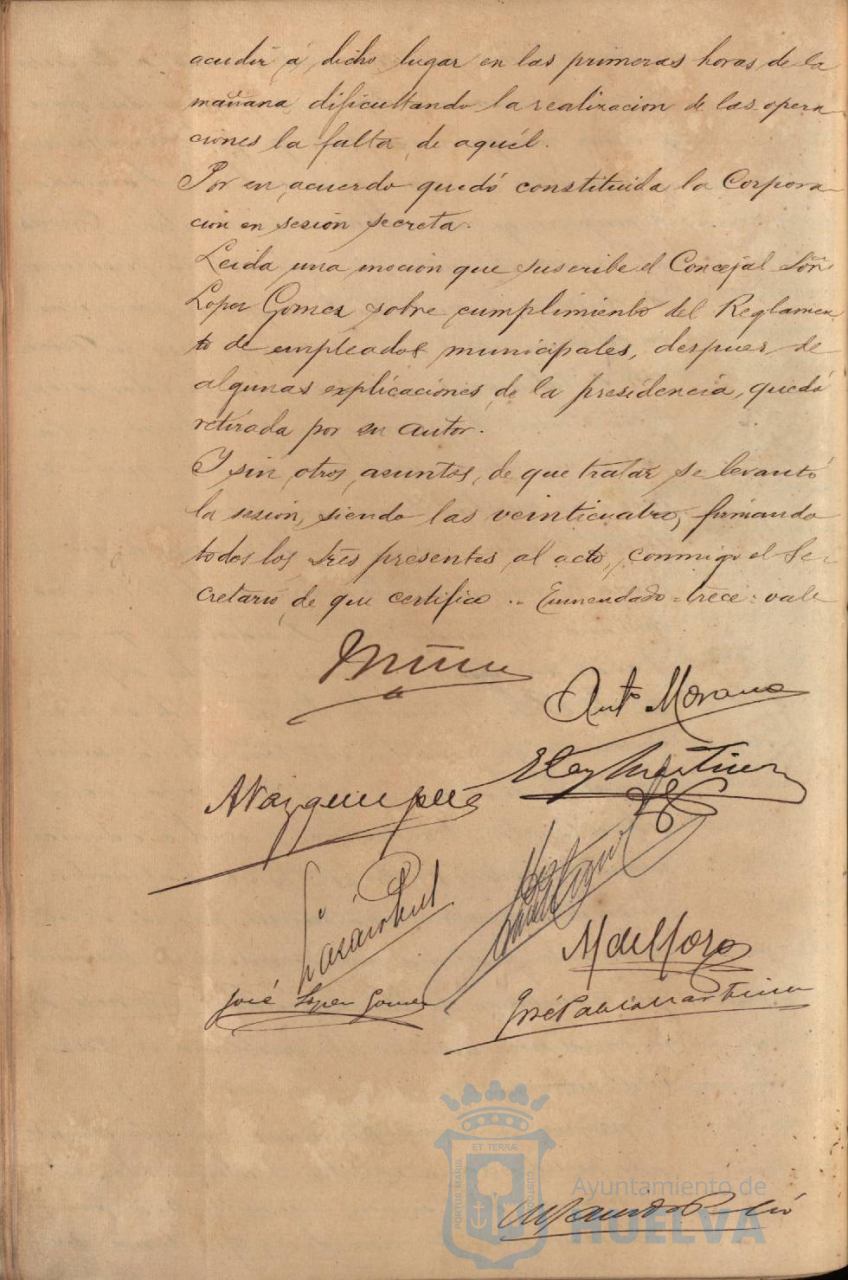 acudir á dicho lugar en las primeras horas de la
mañana, dificultando la realizacion de las opera-
ciones la falta de aquél.
Por en acuerdo quedó constituida la Corpora-
cion en sesión secreta.
Leida una moción que suscribe el Concejal Sõr
Lopez Gomez sobre cumplimiento del Reglamen-
to de empleados municipales, despues de
algunas explicaciones de la presidencia, quedó
retirada por su autor.
Y sin otros asuntos de que tratar se levantó
la sesión, siendo las veinticuatro, firmando
todos los Sres presentes al acto, conmigo el Se-
cretario, de que certifico .. Enmendado = trece = vale
Antº Morano
A Vazquez
Eloy Martinez
M del Hoyo
José Lopez Gomez
José Pablo Martinez
ET TERRA
PORTUS MARIS
CUSTODIA
Ayuntamiento de
HUELVA